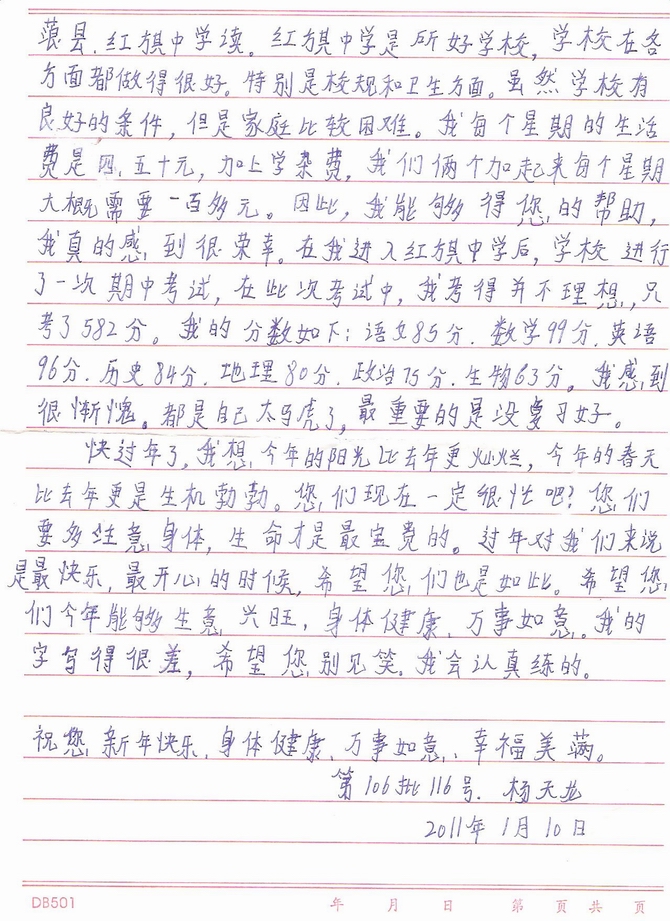 县.红旗中学读。红旗中学是所好学校，学校在各
方面都做得很好。特别是校规和卫生方面。虽然学校有
良好的条件，但是家庭比较困难。我每个星期的生活
费是四.五十元，加上学杂费，我们俩个加起来每个星期
大概需要一百多元。因此，我能够得您的帮助，
我真的感到很荣幸。在我进入红旗中学后，学校进行
了一次期中考试，在此次考试中，我考得并不理想，只
考了582分。我的分数如下：语文85分.数学99分.英语
96分.历史84分.地理80分.政治75分.生物63分。我感到
很惭愧。都是自己太马虎了，最重要的是没复习好。
快过年了，我想今年的阳光比去年更灿烂，今年的春天
比去年更是生机勃勃。您们现在一定很忙吧？您们
要多注意身体，生命才是最宝贵的。过年对我们来说
是最快乐，最开心的时候，希望您们也是如此。希望您
们今年能够生意兴旺，身体健康、万事如意。我的
字写得很差，希望您别见笑。我会认真练的。
祝您新年快乐、身体健康、万事如意、幸福美满。
第106批116号. 杨天
2011年1月10日
DB501 年 月 日 第 页 共 页